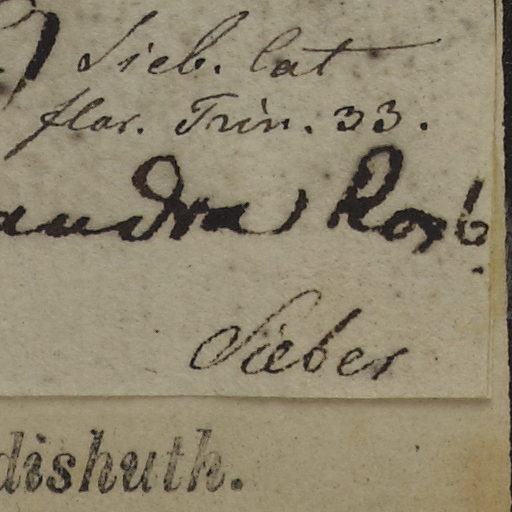 Sieb. Cat
flor. Trin. 33.
andra Roxb.
Sieber
dishuth.